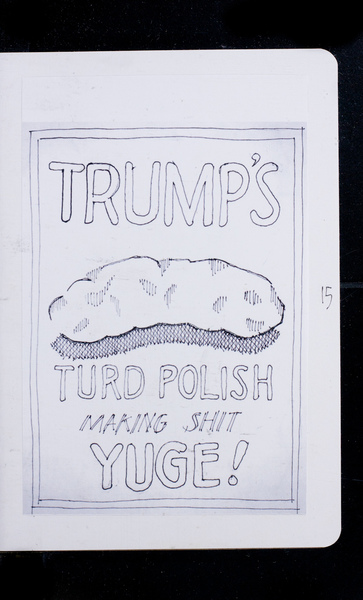 TRUMP'S
TURD POLISH
MAKING SHIT
YUGE!
15